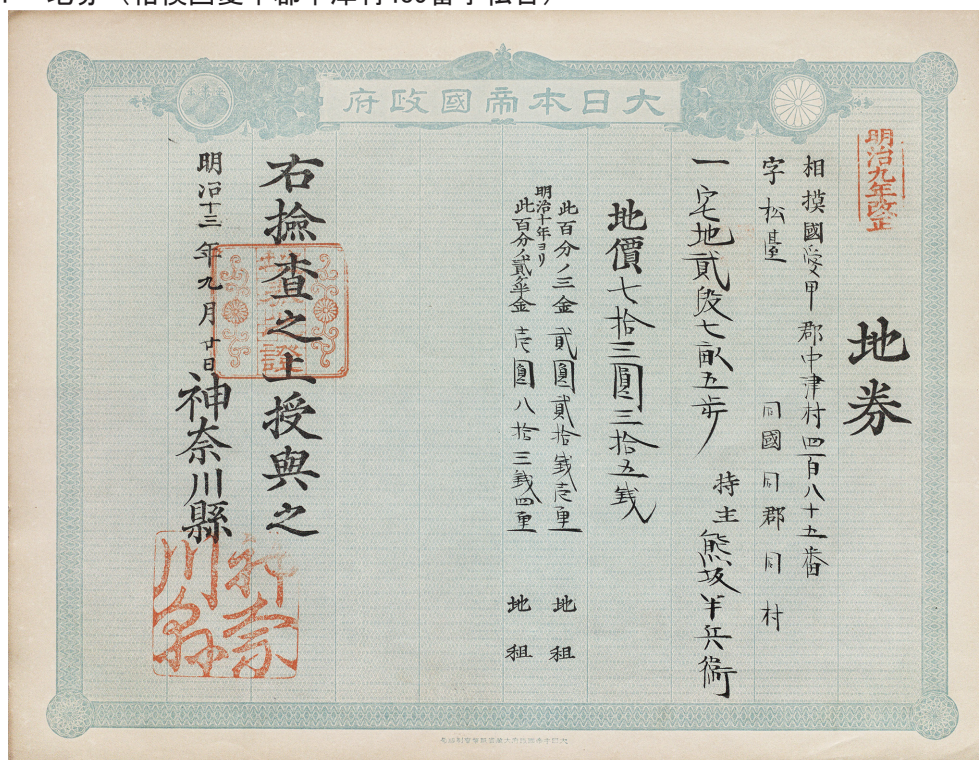 大日本帝國政府
明治九年改正
地券
相摸國愛甲郡中津村四百八十五番
字松臺
同國同郡同村
一宅地貳段七畝五歩
持主 熊坂半兵衞
地價七拾三圓三拾五錢
此百分ノ三金 貳圓貳拾錢壱厘 地租
明治十年ヨリ
此百分ノ貳ケ半金 壱圓八拾三錢四厘 地租
右撿查之上授與之
明治十三年九月廿日
神奈川縣
神奈川縣